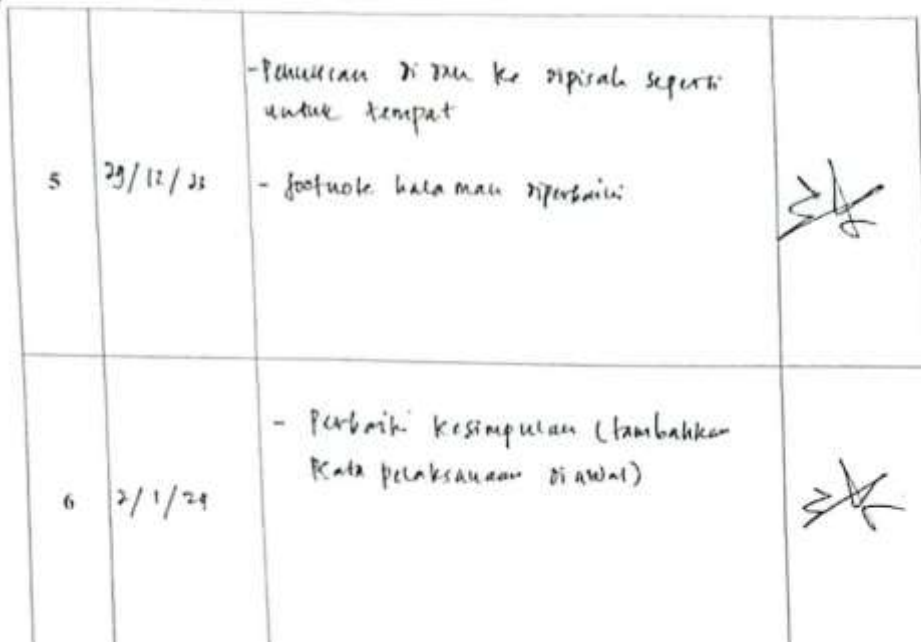 5
29/12/23
- Penulisan di dan ke dipisah seperti
untuk tempat
- footnote halaman diperbaiki
6
2/1/24
- Perbaiki kesimpulan (tambahkan
kata pelaksanaan di awal)